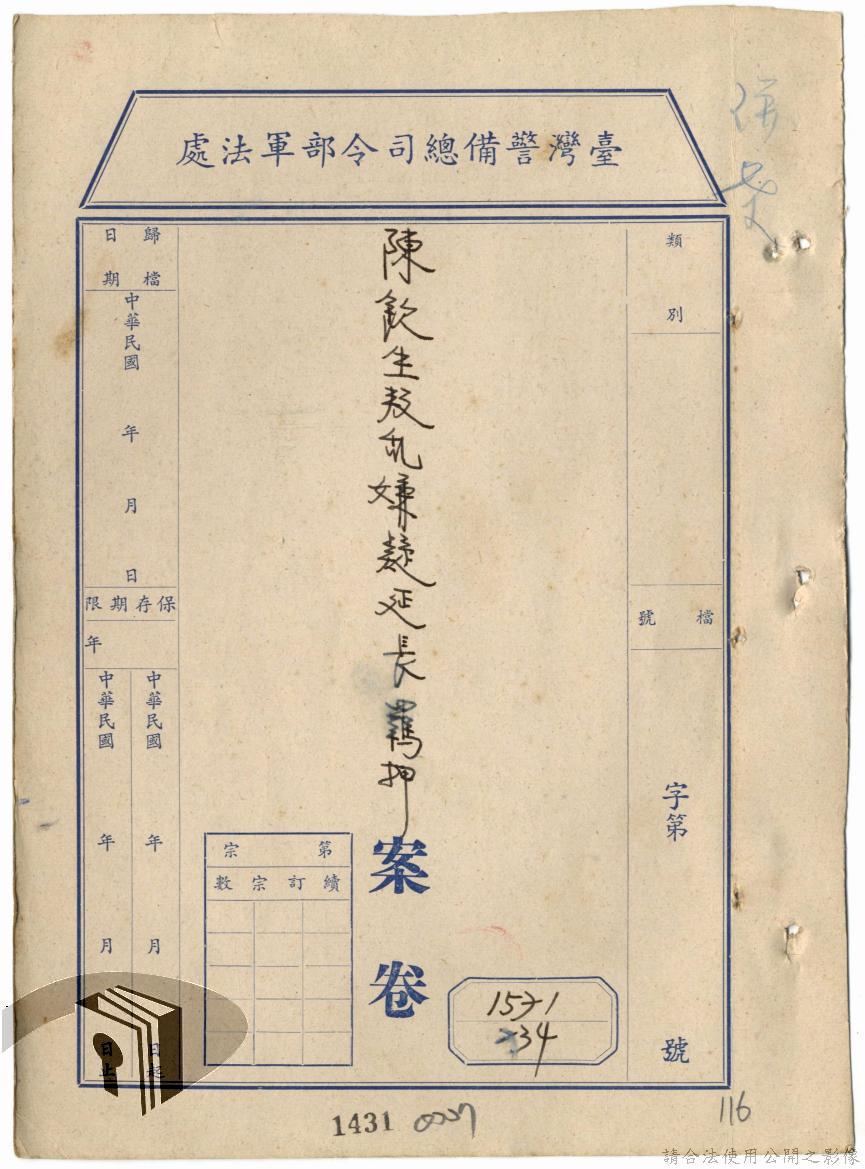 臺灣警備總司令部軍法處
併案
類別
檔號
字第
號
陳欽生叛乱嫌疑延長羈押
案卷
1571
34
第宗
續訂宗數
歸檔日期
中華民國
年
月
日
保存期限
年
中華民國
年
月
日起
中華民國
年
月
日止
1431
116
請合法使用公開之影像